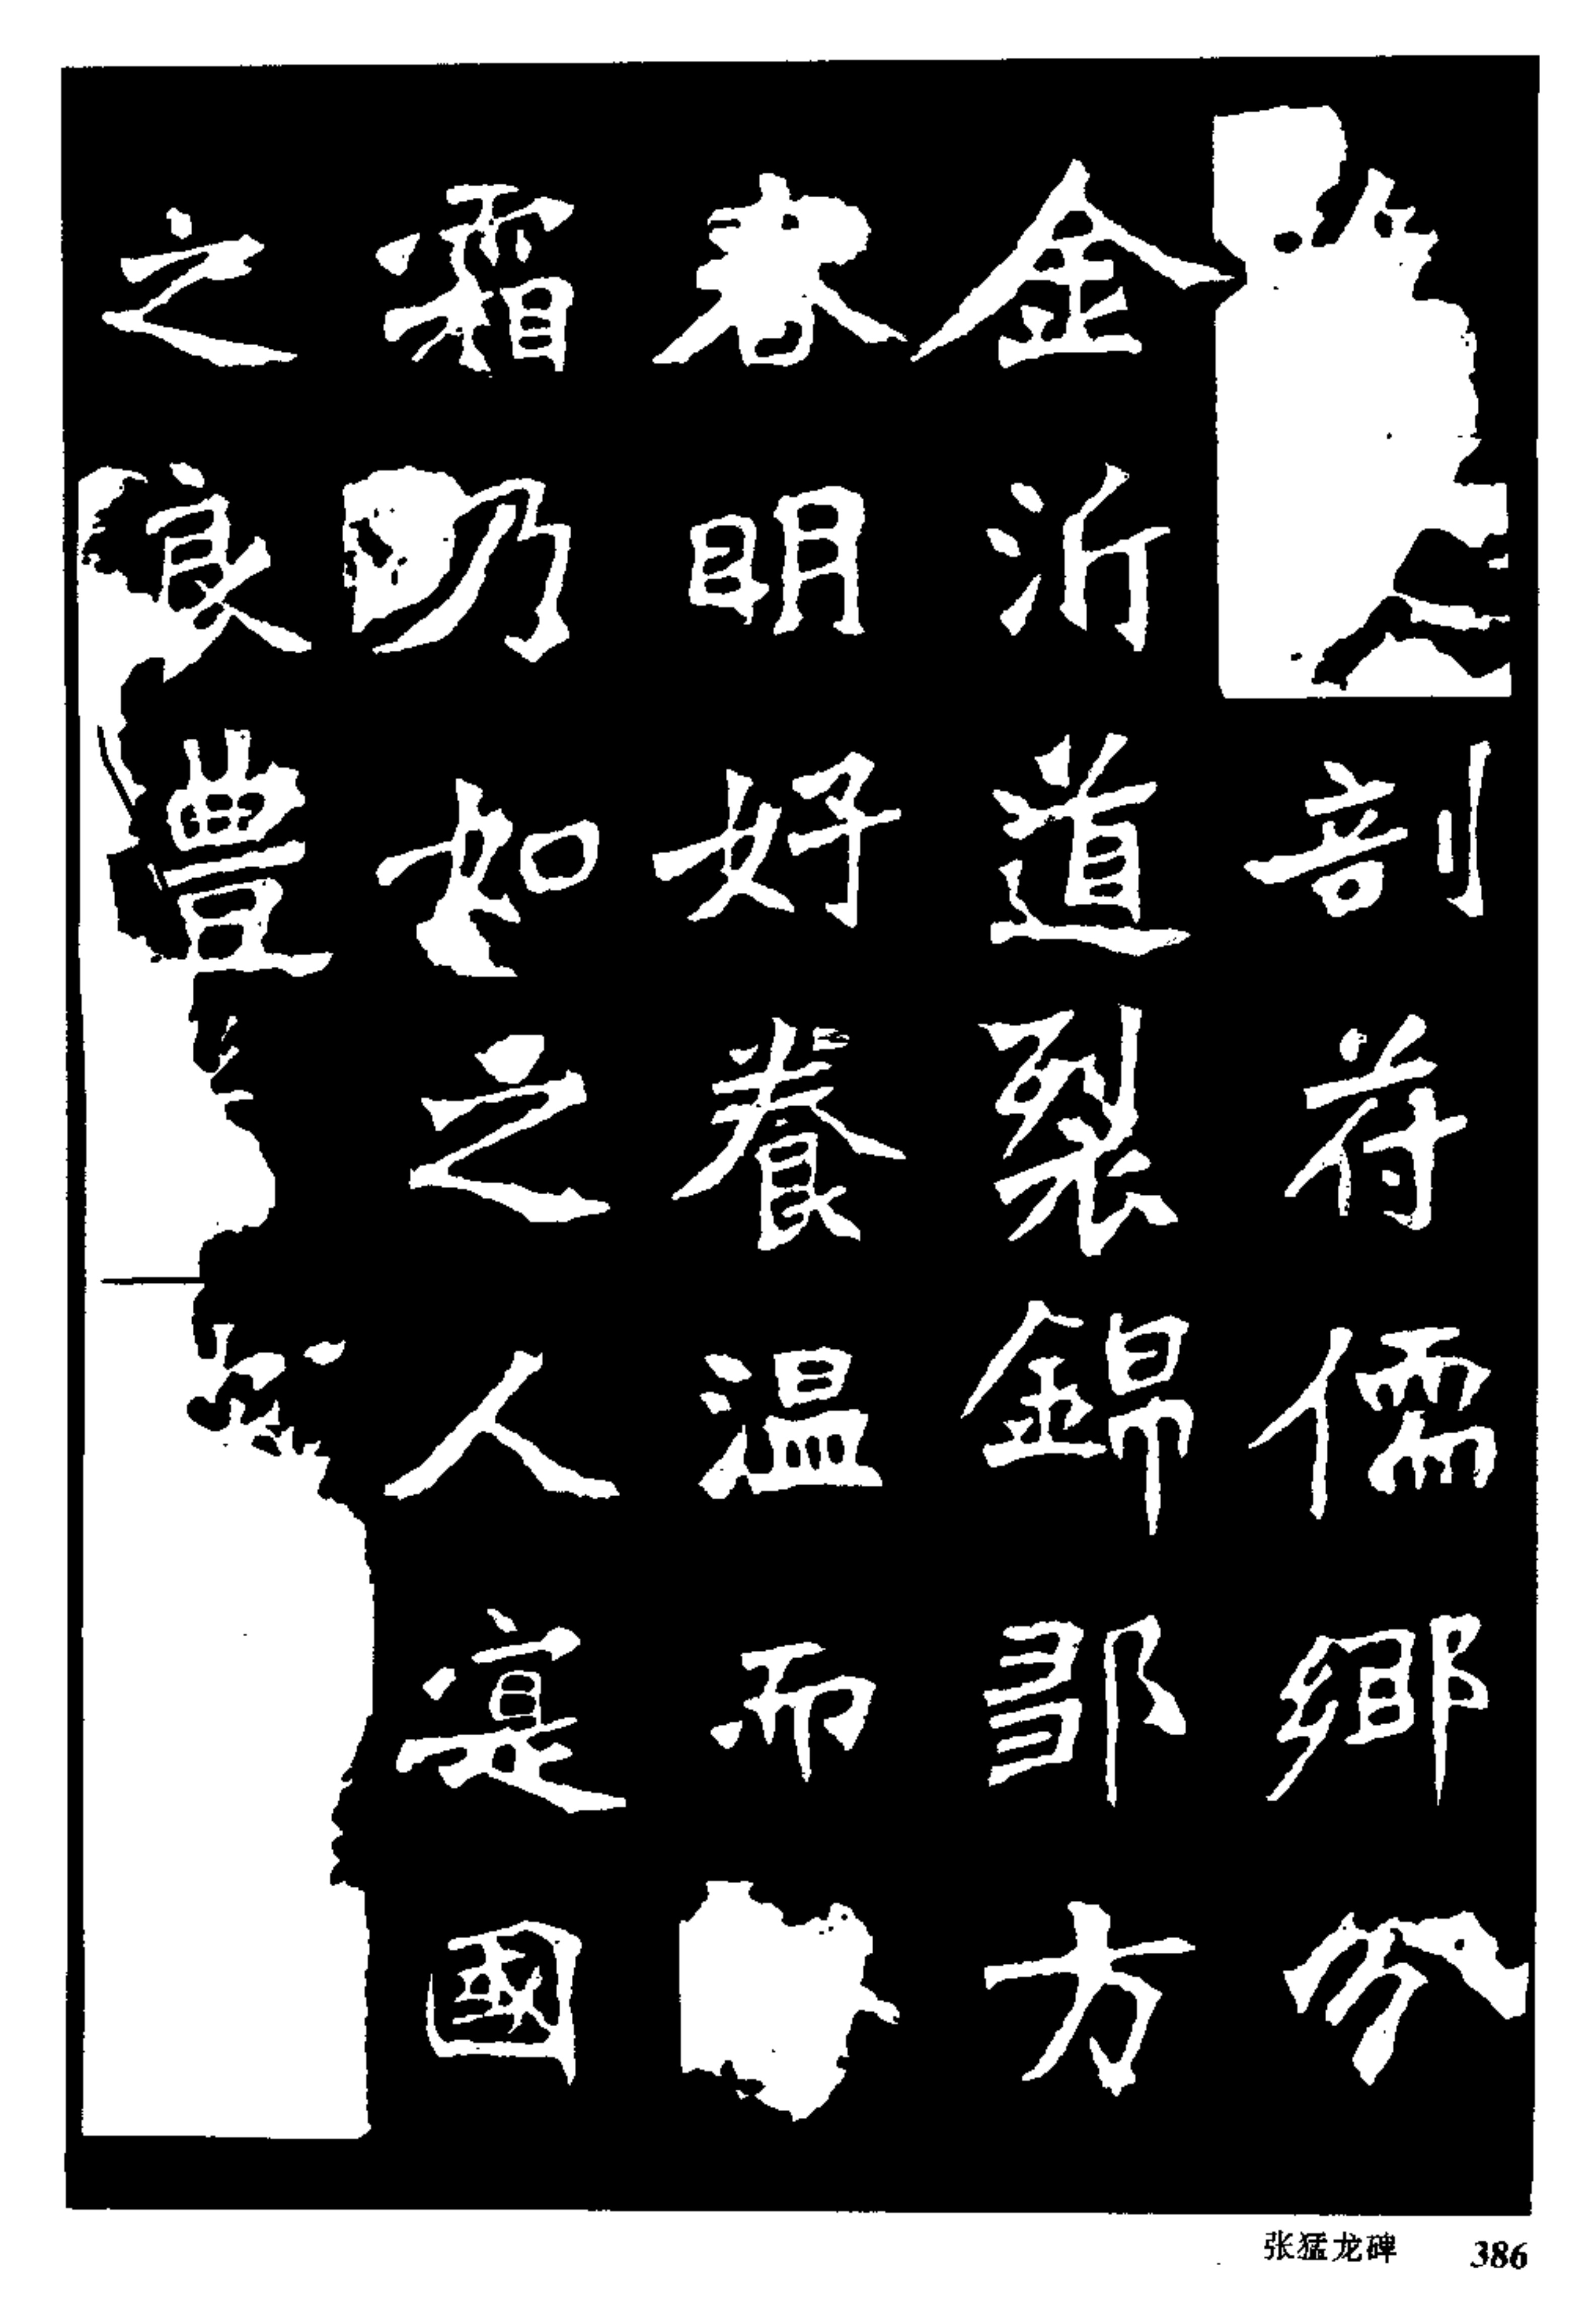 剖符儒鄉分
金沂道裂錦鄒方
春明好養溫而
霜乃如之人寔國
之良禮
张猛龙碑 386